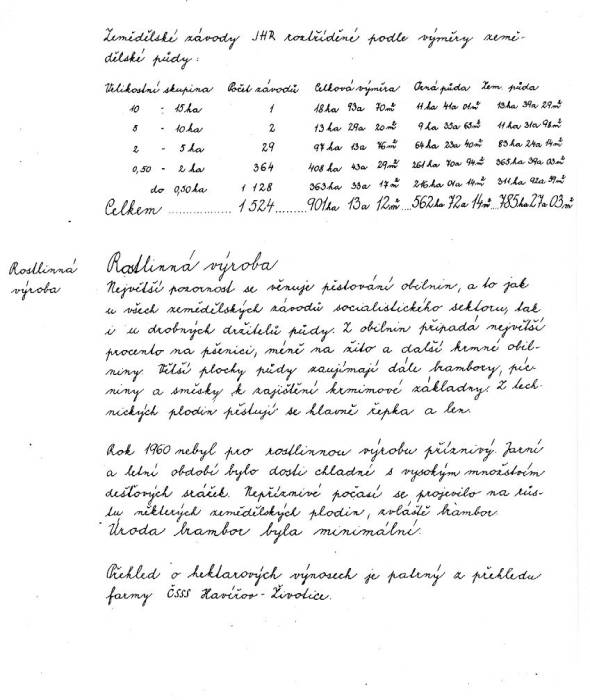 Zemědělské závody JHR roztříděné podle výměry země-
dělské půdy:
Velikostní skupina Počet závodů Celková výměra Orná půda Zem. půda
10 - 15 ha 1 18 ha 93 a 70 m² 11 ha 41 a 01 m² 13 ha 39 a 29 m²
5 - 10 ha 2 13 ha 29 a 20 m² 9 ha 33 a 63 m² 11 ha 31 a 98 m²
2 - 5 ha 29 97 ha 13 a 76 m² 64 ha 23 a 40 m² 83 ha 24 a 14 m²
0,50 - 2 ha 364 408 ha 43 a 29 m² 261 ha 70 a 94 m² 365 ha 39 a 03 m²
do 0,50 ha 1 128 363 ha 33 a 17 m² 216 ha 01 a 14 m² 311 ha 92 a 59 m²
Celkem 1 524 901 ha 13 a 12 m² 562 ha 72 a 14 m² 785 ha 27 a 03 m²
Rostlinná
výroba
Rostlinná výroba
Největší pozornost se věnuje pěstování obilnin, a to jak
u všech zemědělských závodů socialistického sektoru, tak
i u drobných držitelů půdy. Z obilnin připadá největší
procento na pšenici, méně na žito a další krmné obil-
niny. Větší plochy půdy zaujímají dále brambory, píc-
niny a směsky k zajištění krmivové základny. Z tech-
nických plodin pěstují se hlavně řepka a len.
Rok 1960 nebyl pro rostlinnou výrobu příznivý. Jarní
a letní období bylo dosti chladné s vysokým množstvím
dešťových srážek. Nepříznivé počasí se projevilo na růs-
tu některých zemědělských plodin, zvláště brambor.
Úroda brambor byla minimální.
Přehled o hektarových výnosech je patrný z přehledu
farmy ČSSS Havířov - Životice.